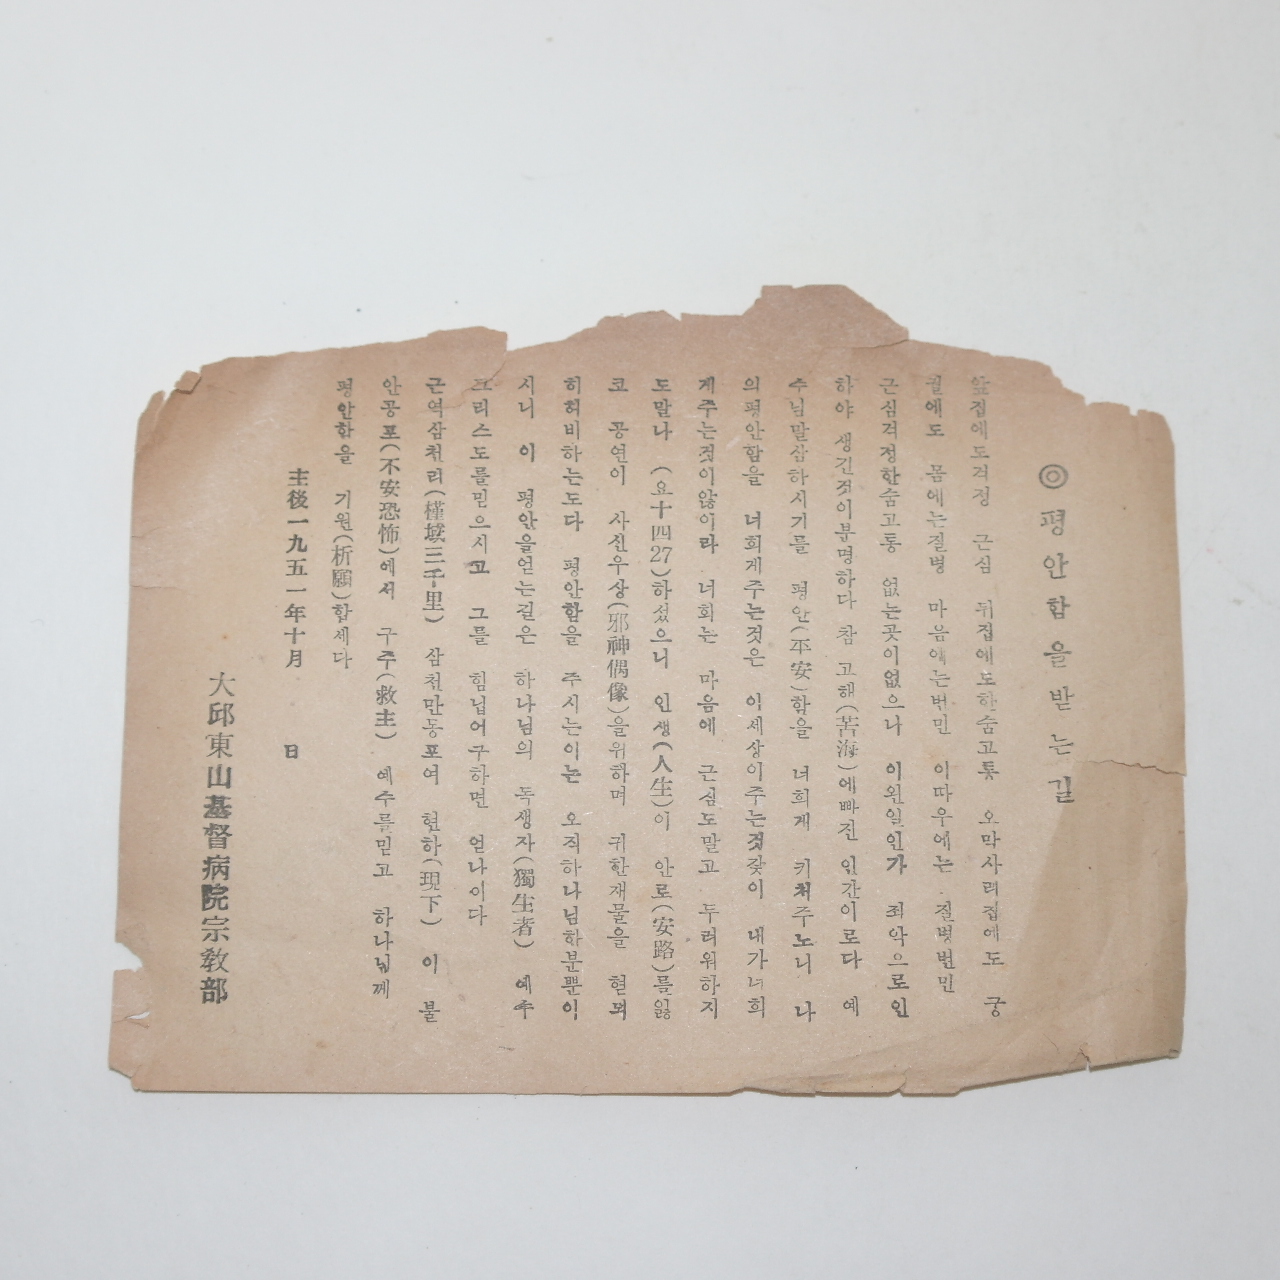 ◎ 평안함을받는길
앞집에도걱정 근심 뒤집에도한숨고통 오막사리집에도 궁
궐에도 몸에는질병 마음에는번민 이따우에는 질병번민
근심걱정한숨고통 없는곳이없으나 이왼일인가 죄악으로인
하야 생긴것이분명하다 참 고해(苦海)에빠진 인간이로다 예
수님말삼하시기를 평안(平安)함을 너희게 키처주노니 나
의평안함을 너희게주는것은 이세상이주는것같이 내가너희
게주는것이않이라 너희는 마음에 근심도말고 두려워하지
도말나 (요十四27)하섰으니 인생(人生)이 안로(安路)를잃
코 공연이 사신우상(邪神偶像)을위하며 귀한재물을 헡되
히허비하는도다 평안함을 주시는이는 오직하나님한분뿐이
시니 이 평안을얻는길은 하나님의 독생자(獨生者) 예수
그리스도를믿으시고 그를 힘닙어구하면 얻나이다
근역삼천리(槿域三千里) 삼천만동포여 현하(現下) 이 불
안공포(不安恐怖)에서 구주(救主) 예수를믿고 하나님께
평안함을 기원(祈願)합세다
主後一九五一年十月 日
大邱東山基督病院宗敎部